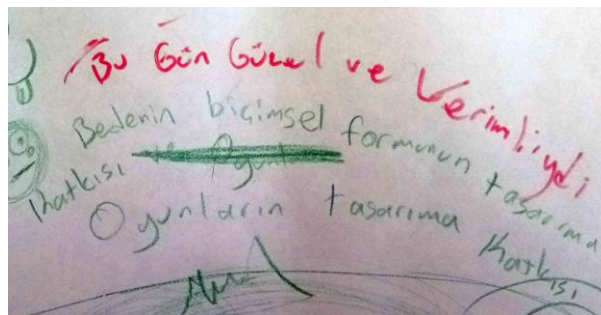 Bu Gün Güzel ve Verimliydi
Bedenin biçimsel formunun tasarıma
katkısı
Oyunların tasarıma katkısı